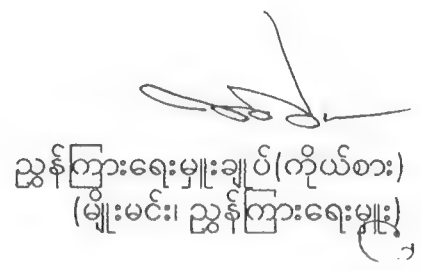 ညွှန်ကြားရေးမှူးချုပ်(ကိုယ်စား)
(မျိုးမင်း၊ ညွှန်ကြားရေးမှူး)